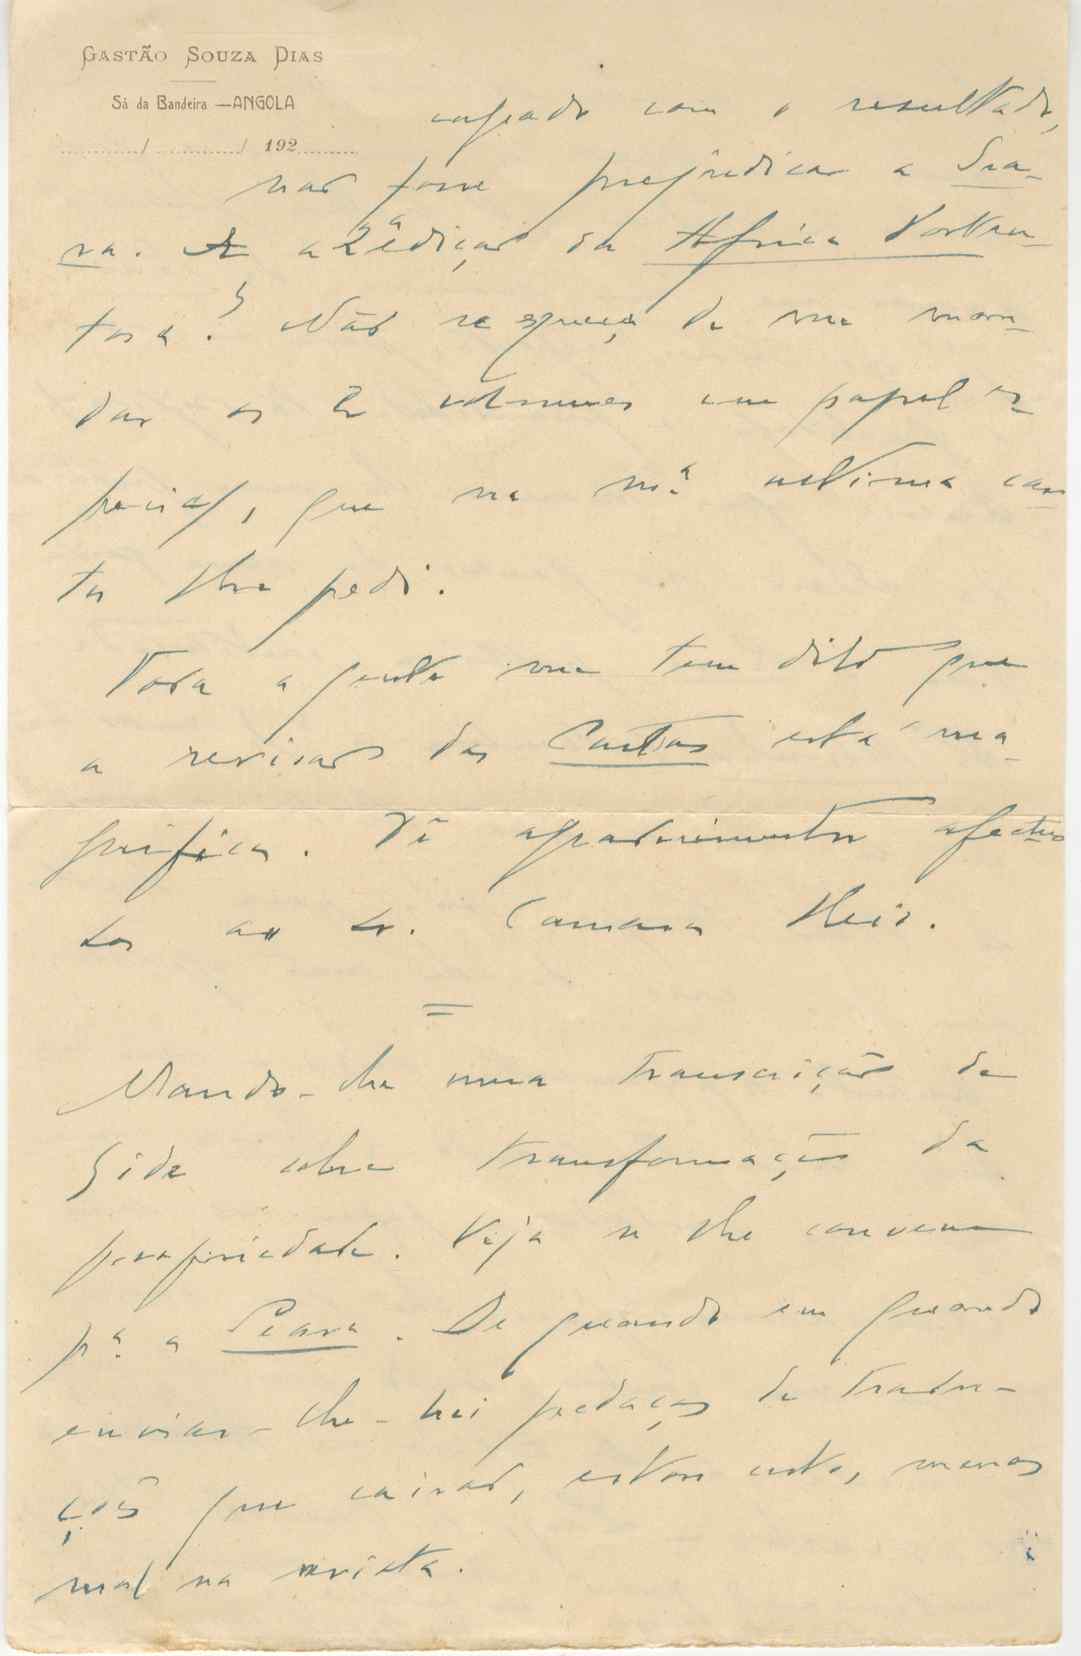 GASTÃO SOUZA DIAS
Sá da Bandeira —ANGOLA
............/............/ 192........
com o resultado,
não fosse prejudicar a Sea-
ra. A a 2ª edição da Africa Porten-
tosa? Não se esqueça de me man-
dar os 2 volumes em papel es-
pecial, que na mª ultima car-
ta lhe pedi.
Toda a gente me tem dito que
a revisão das Cartas está ma-
gnifica. Dê agradecimentos afectuo
sos ao Sr. Camara Reis.
=
Mando-lhe uma transcrição de
Gide sobre transformação da
propriedade. Veja se lhe convem
pª a Seara. De quando em quando
enviar-lhe-hei pedaços de tradu-
ções que cairão, estou certo, menos
mal na revista.